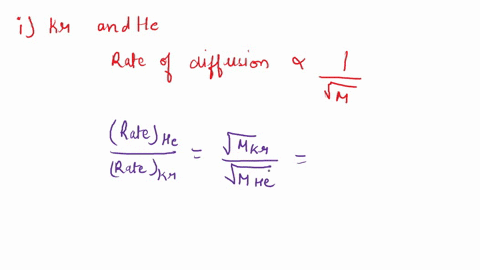 i) Kr and He
Rate of diffusion ∝ 1/√M
(Rate)He / (Rate)Kr = √MKr / √MHe =